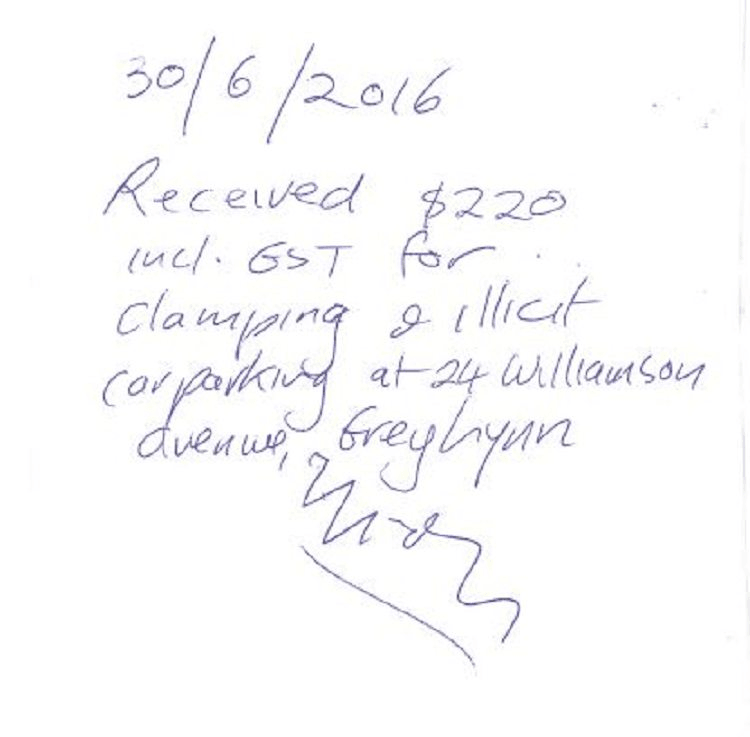 30/6/2016
Received $220
incl. GST for
clamping & illicit
carparking at 24 Williamson
avenue, Greylynn